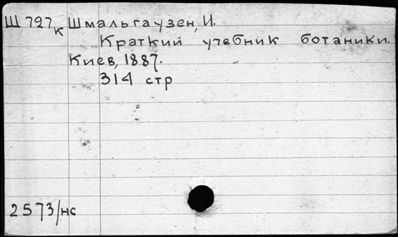 Ш 727к Шмальгаузен, И.
Краткий учебник ботаники.
Киев, 1887.
314 стр
2573/нс